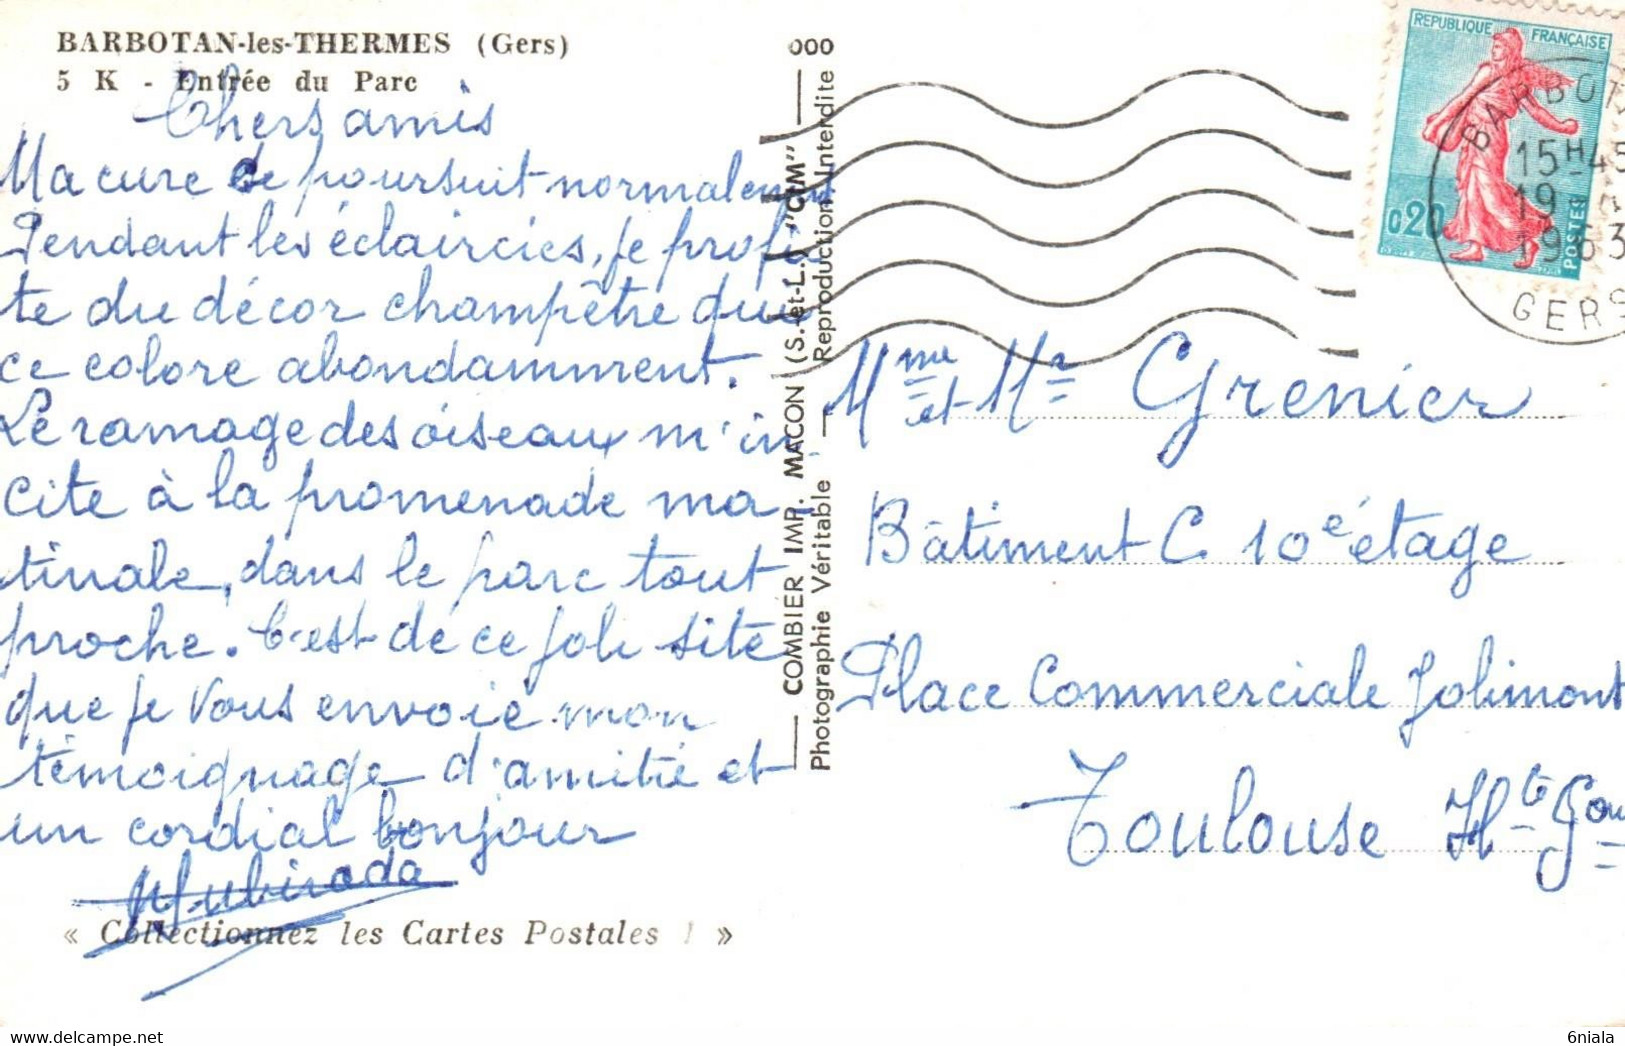 BARBOTAN-les-THERMES (Gers)
5 K - Entrée du Parc
Chers amis
Ma cure se poursuit normalement
Pendant les éclaircies, je profi
te du décor champêtre que
ce colore abondamment.
Le ramage des oiseaux m'in-
cite à la promenade ma-
tinale, dans le parc tout
proche. C'est de ce joli site
que je vous envoie mon
témoignage d'amitié et
un cordial bonjour
« Collectionnez les Cartes Postales ! »
000
COMBIER IMP. MACON (S.-et-L.) "CIM"
Photographie Véritable - Reproduction Interdite
REPUBLIQUE FRANÇAISE
0.20
POSTES
BARBOT
15H45
19
1963
GERS
Mme et Mr Grenier
Bâtiment C 10e étage
Place Commerciale Jolimont
Toulouse Hte Gar
6niala